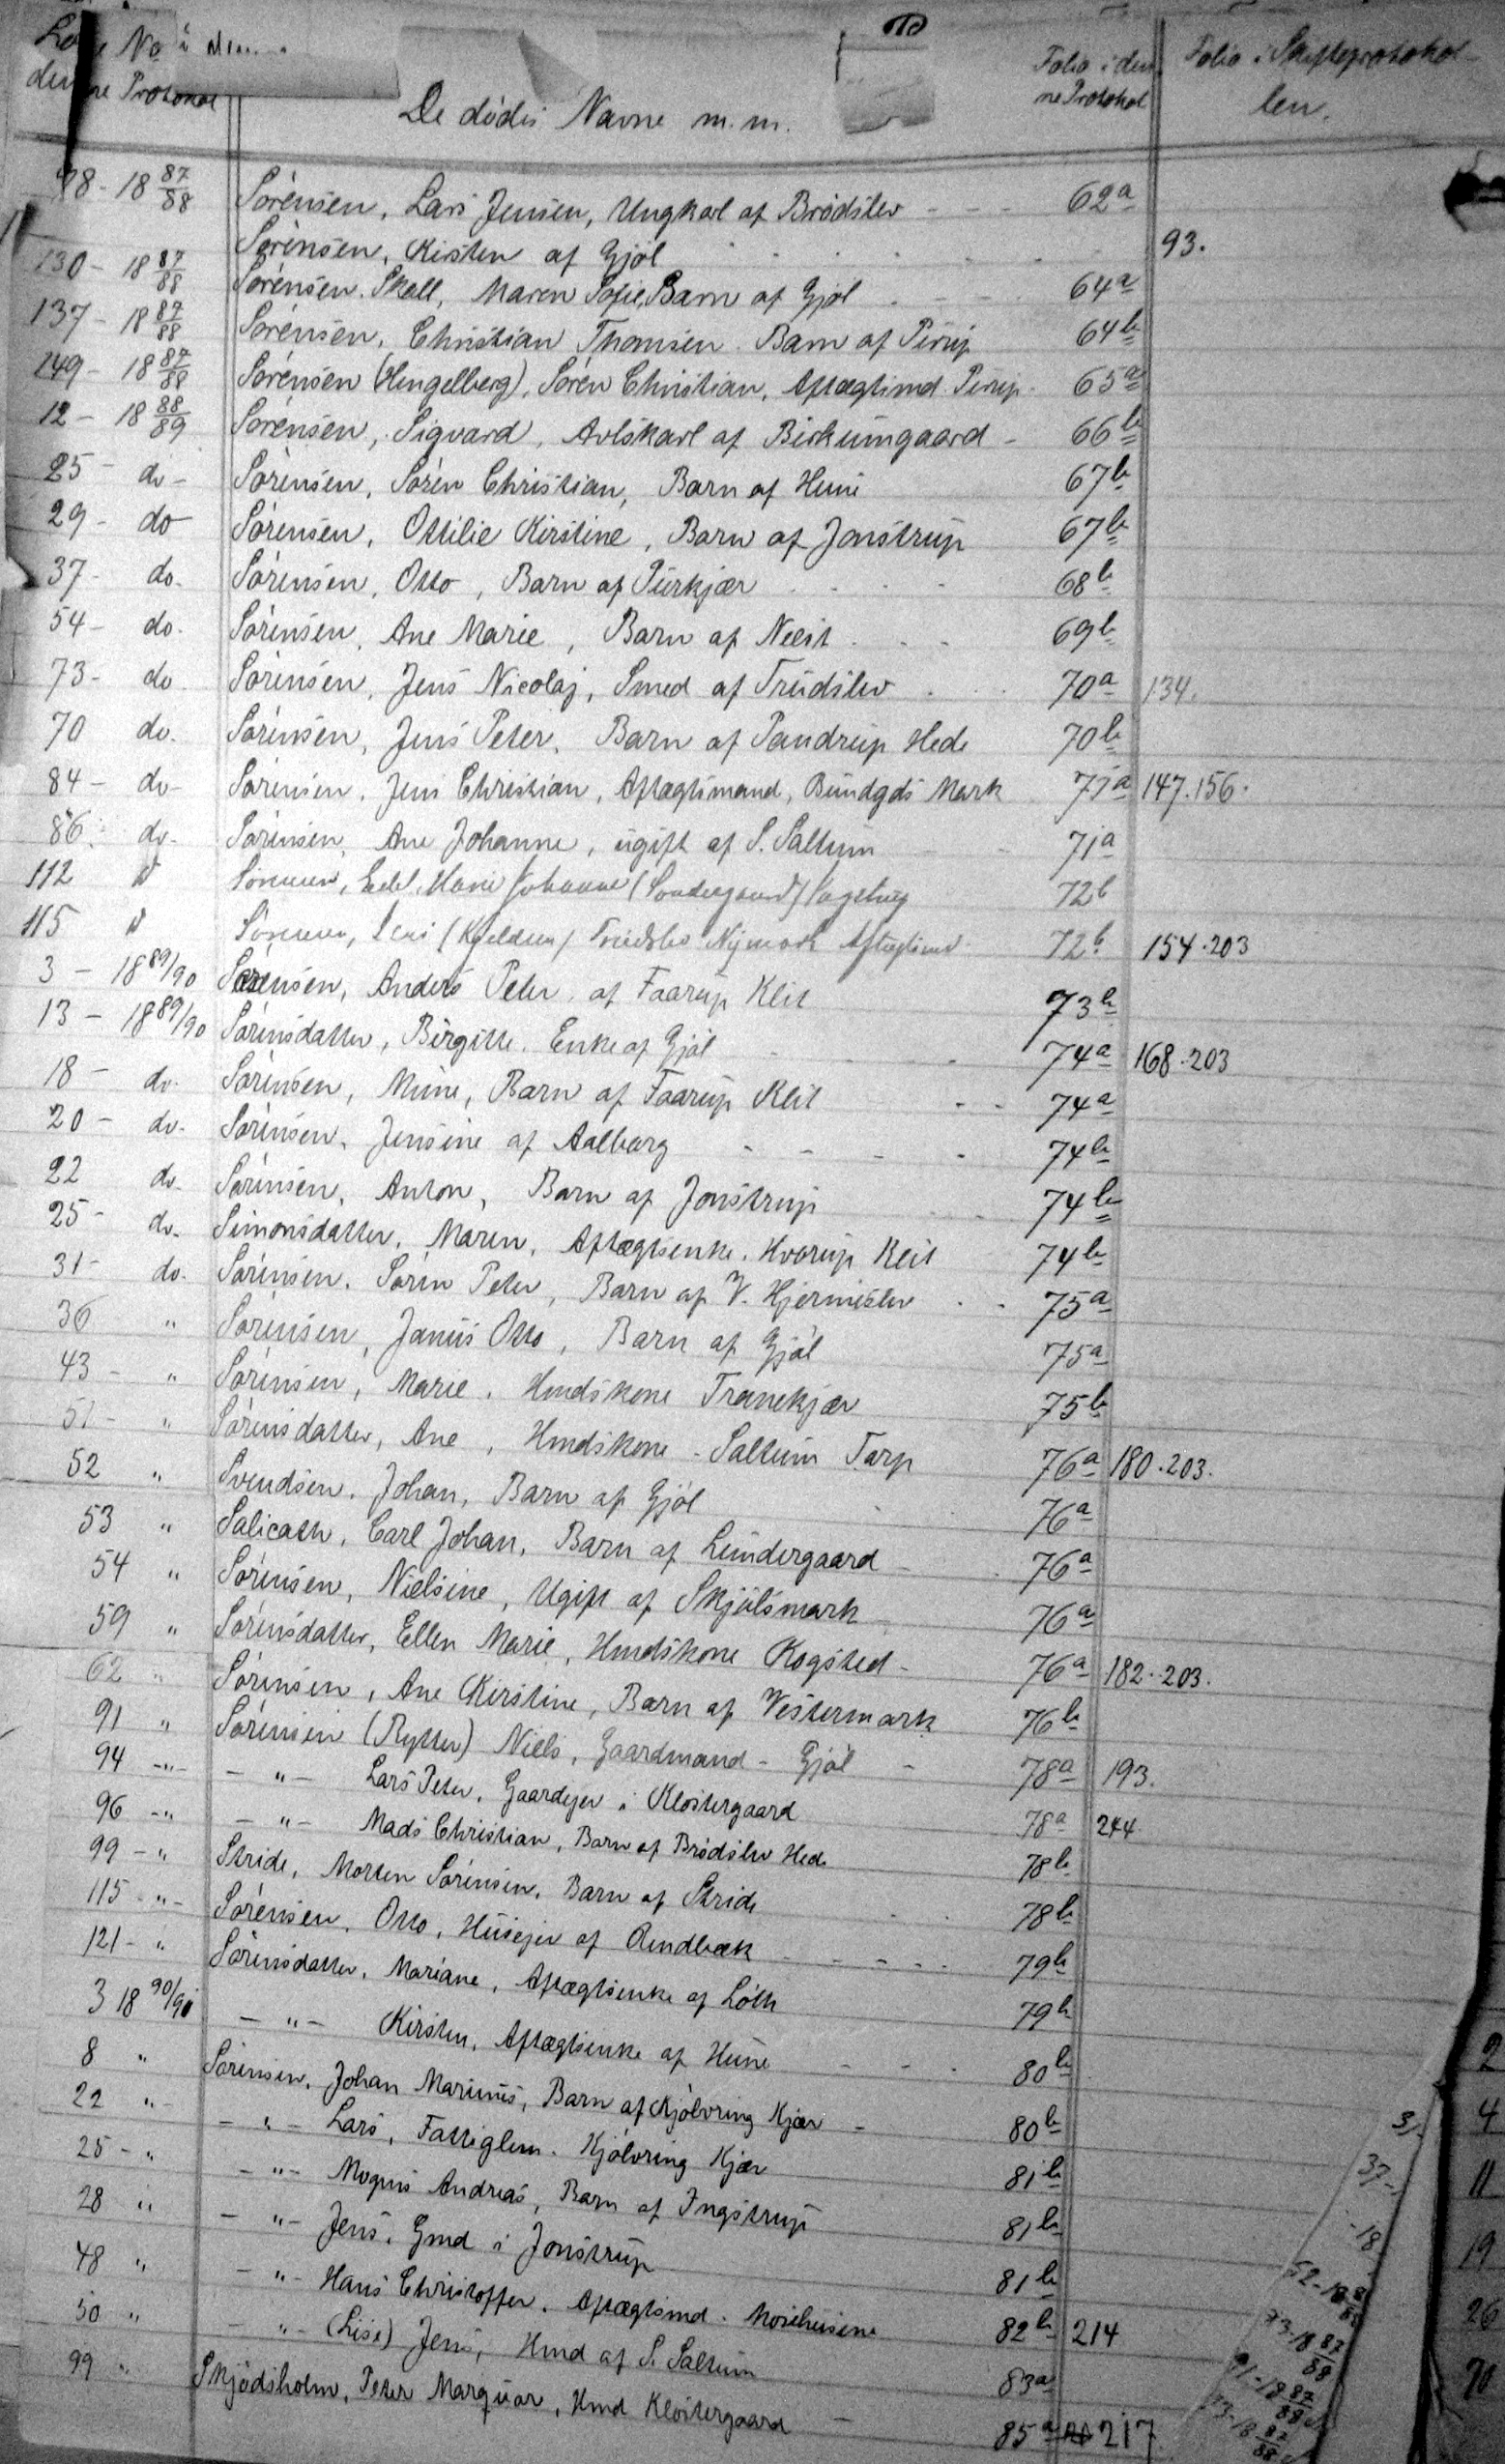 No i
denne Protokol
De dödes Navne m.m.
Folio i den
ne Protokol
Folio i Skifteprotokol
len.
98 - 18 87/88 Sörensen, Lars Jensen, Ungkarl af Brödslev - - - 62a
Sörensen, Kirsten af Gjöl 93.
130 - 18 87/88 Sörensen. Skall, Maren Sofie, Barn af Gjöl 64a
137 - 18 87/88 Sörensen, Christian Thomsen. Barn af Pirup 64b
149 - 18 87/88 Sörensen (Hengelberg), Sören Christian, Aftægtsmd. Pirup. 65a
12 - 18 88/89 Sörensen, Sigvard, Avlskarl af Birkumgaard - 66b
25 - do - Sörensen, Sören Christian, Barn af Hune 67b
29 - do Sörensen, Ottilie Kirstine, Barn af Jonstrup 67b
37 - do. Sörensen, Otto, Barn af Purkjær 68b
54 - do. Sörensen, Ane Marie, Barn af Neest 69b
73 - do. Sörensen, Jens Nicolaj, Smed af Trudslev 70a 134.
70 do. Sörensen, Jens Peter, Barn af Pandrup Hede 70b
84 - do - Sörensen, Jens Christian, Aftægtsmand, Bundgds Mark 71a 147.156.
86. do - Sörensen, Ane Johanne, ugift af S. Saltum 71a
112 d Sörensen, Edel Marie Johanne (Søndergaard) 72b
115 d Sörensen, Jens (Kjeldsen) Trudslev Nymark Aftægtsmd. 72b 154.203
3 - 18 89/90 Sörensen, Anders Peter, af Faarup Klit 73b
13 - 18 89/90 Sörensdatter, Birgitte. Enke af Gjöl 74a 168.203
18 - do. Sörensen, Mine, Barn af Faarup Klit 74a
20 - do. Sörensen, Jensine af Aalborg 74b
22 do. Sörensen, Anton, Barn af Jonstrup 74b
25 - do. Simonsdatter, Maren, Aftægtsenke. Hvorup Klit 74b
31 - do. Sörensen, Sören Peter, Barn af V. Hjermitslev 75a
36 " Sörensen, Janus Otto, Barn af Gjöl 75a
43 - " Sörensen, Marie, Hmdskone Tranekjær 75b
51 - " Sörensdatter, Ane, Hmdskone - Saltum Tarp 76a 180.203.
52 " Svendsen, Johan, Barn af Gjöl 76a
53 " Salicath, Carl Johan, Barn af Lundergaard 76a
54 " Sörensen, Nielsine, Ugift af Skjölsmark 76a
59 " Sörensdatter, Ellen Marie, Hmdskone Kogsted - 76a 182.203.
62 " Sörensen, Ane Kirstine, Barn af Vestermark 76b
91 " Sörensen (Rytter) Niels, Gaardmand - Gjöl - 78a 193.
94 -"- - " - Lars Peter, Gaardejer i Klostergaard 78a 244.
96 -" - " - Mads Christian, Barn af Brödslev Hede 78b
99 - " Stride, Morten Sörensen, Barn af Stride 78b
115 -"- Sörensen, Otto, Husejer af Rendbæk 79b
121 - " Sörensdatter, Mariane, Aftægtsenke af Löth 79b
3 18 90/91 - " - Kirsten, Aftægtsenke af Hune 80b
8 " Sörensen, Johan Marinus, Barn af Kjölvring Kjær - 80b
22 " - - " - Lars, Fattiglem. Kjölvring Kjær 81b
25 - " - " - Mogens Andreas, Barn af Ingstrup 81b
28 " - " - Jens, Gmd i Jonstrup 81b
48 " - " - Hans Christoffer, Aftægtsmd. Mosehusene 82b 214
50 " - " - (Lise) Jens, Hmd af S. Saltum 83a
99 " Skjödsholm, Peter Marquar, Hmd Klostergaard - 85a 217
31.
37 -
- 18
52 - 18 87/88
73 - 18 87/88
91 - 18 87/88
73 - 18 87/88
2
4
11
19
26
70